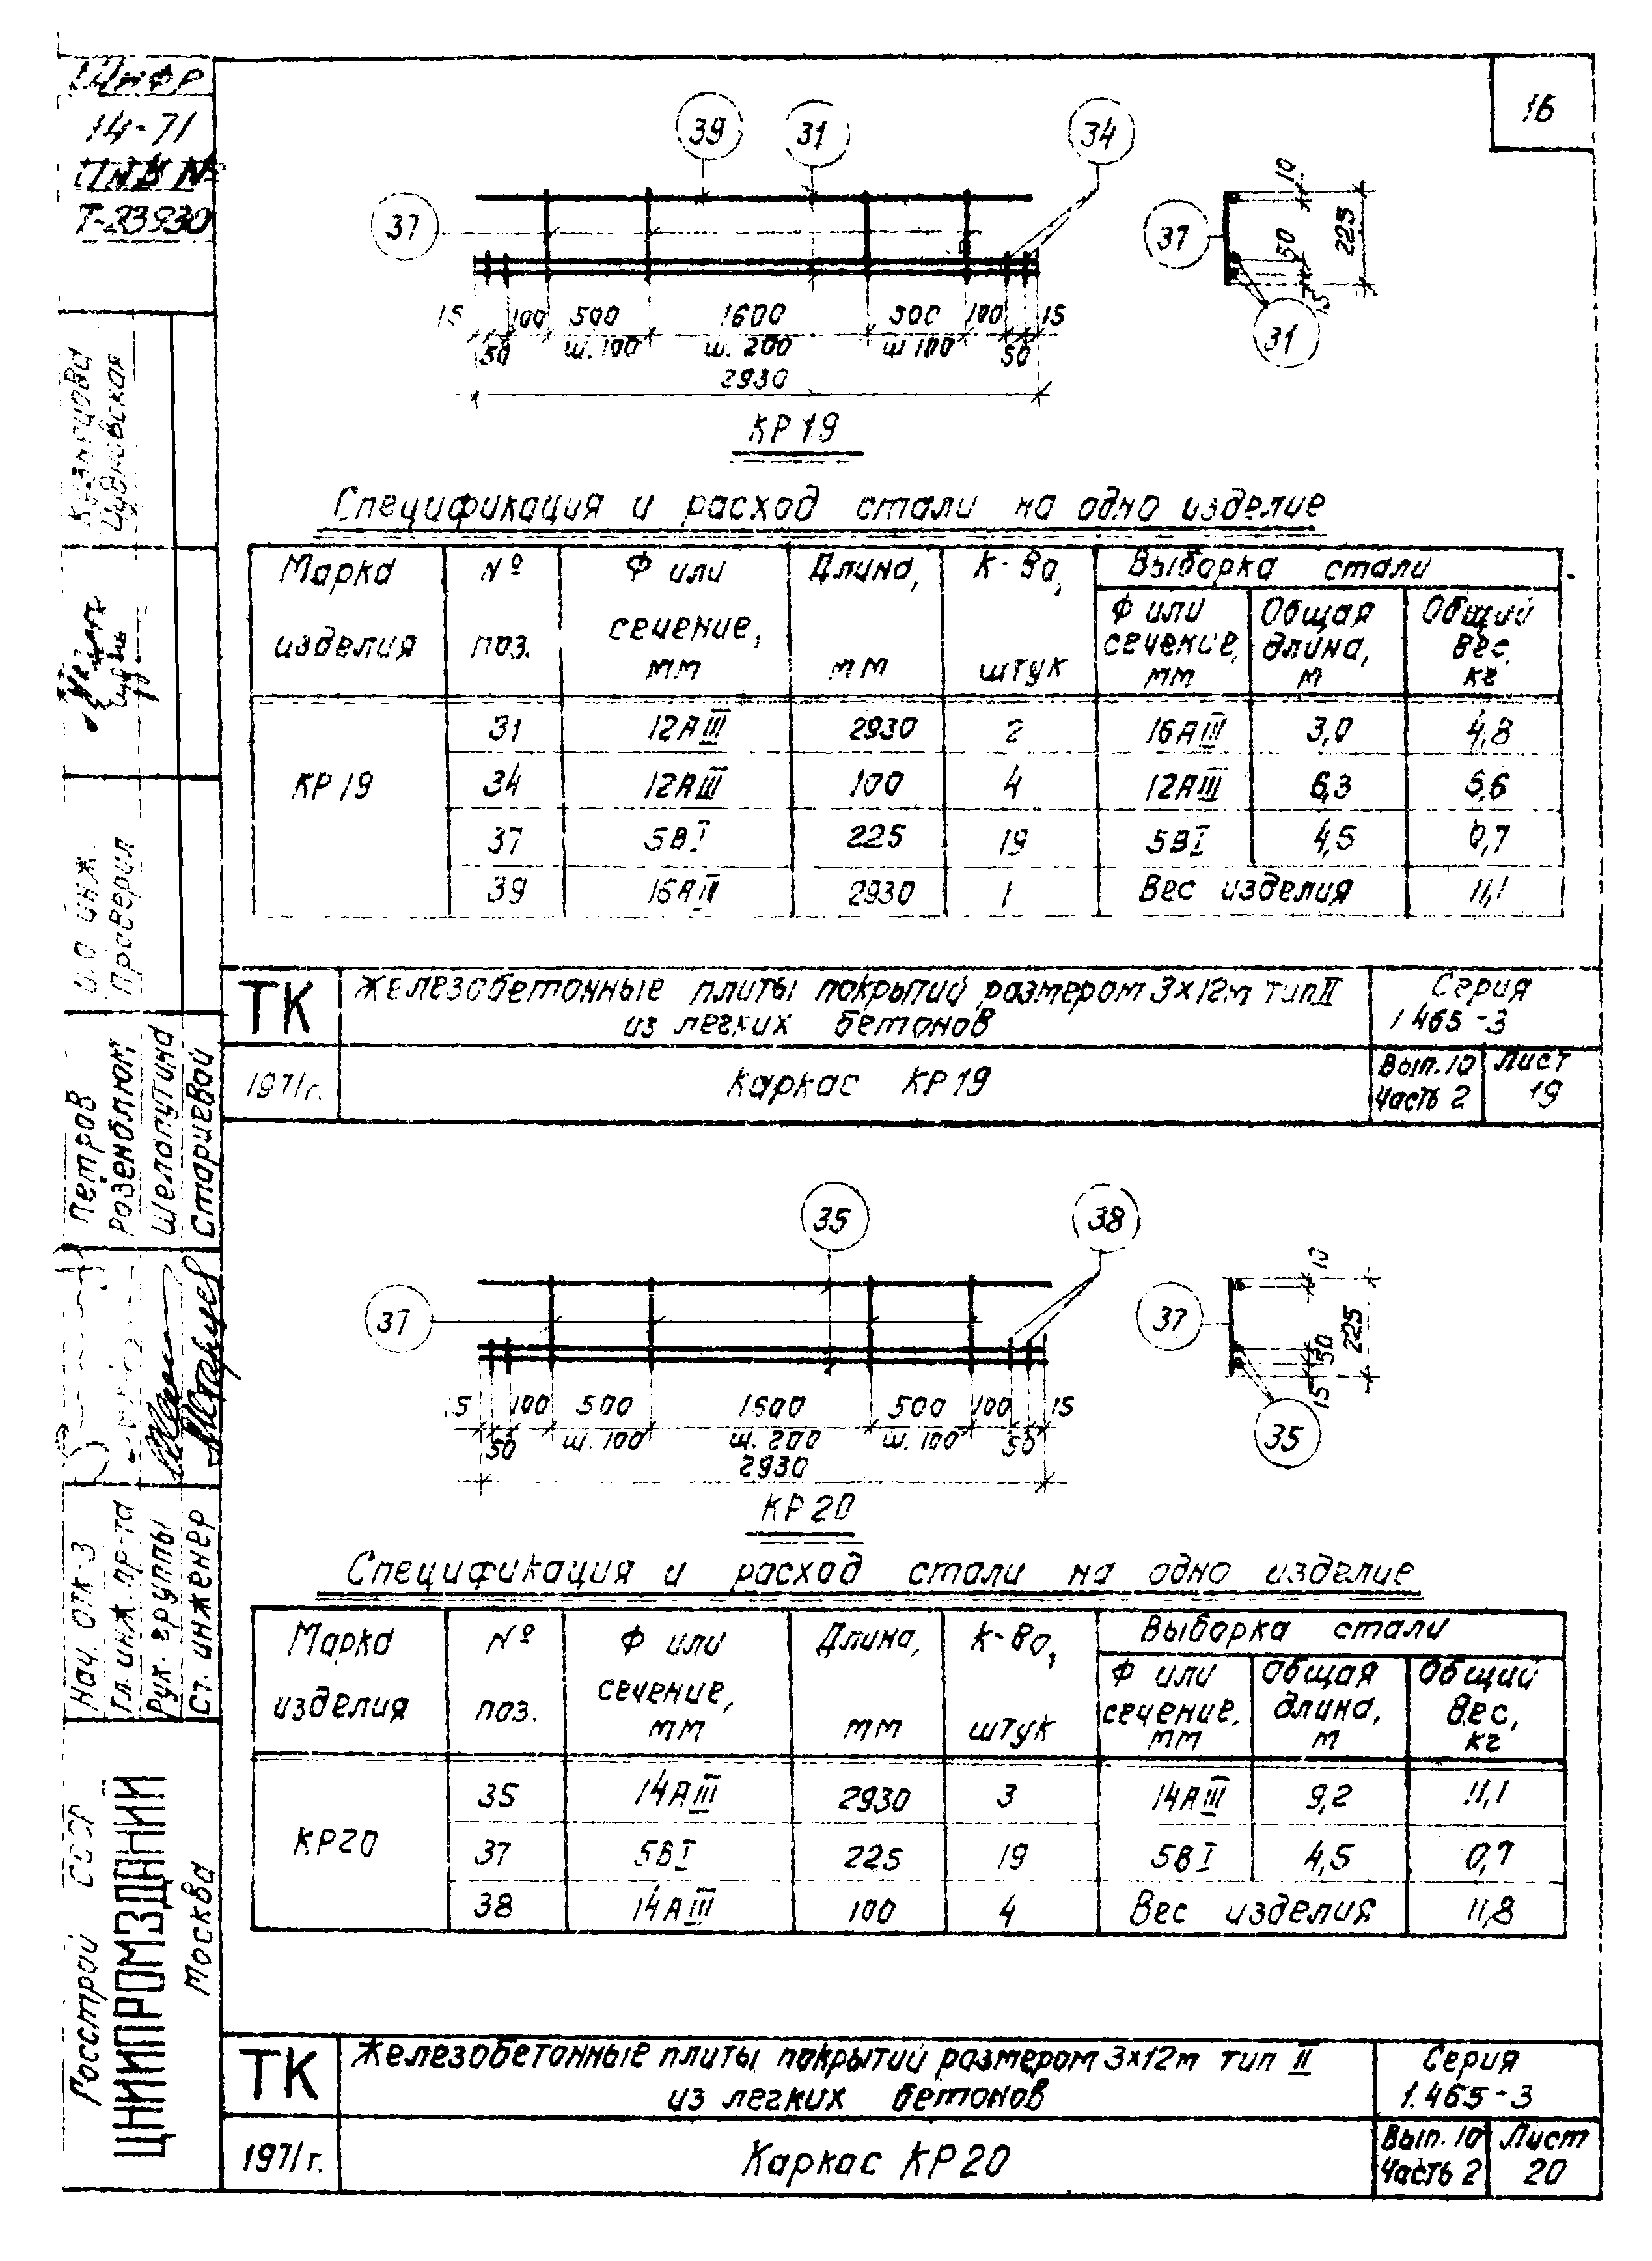 Шифр
14-71
ИНВ №
Т-23930
16
39 31 34
37
15 100 500 1600 500 100 15
50 ш.100 ш.200 ш 100 50
2930
КР19
37
10
50
225
15
31
Спецификация и расход стали на одно изделие
Марка изделия | № поз. | Ф или сечение, мм | Длина, мм | К-во, штук | Выборка стали
Ф или сечение, мм | Общая длина, м | Общий вес, кг
КР19
31 | 12АIII | 2930 | 2 | 16АIII | 3,0 | 4,8
34 | 12АIII | 100 | 4 | 12АIII | 6,3 | 5,6
37 | 5ВI | 225 | 19 | 5ВI | 4,5 | 0,7
39 | 16АIII | 2930 | 1 | Вес изделия | 11,1
ТК
Железобетонные плиты покрытий размером 3х12м тип II
из легких бетонов
Серия
1.465-3
1971г.
Каркас КР19
Вып.10
Часть 2
Лист
19
35 38
37
15 100 500 1600 500 100 15
50 ш.100 ш.200 ш.100 50
2930
КР20
37
10
50
225
15
35
Спецификация и расход стали на одно изделие
Марка изделия | № поз. | Ф или сечение, мм | Длина, мм | К-во, штук | Выборка стали
Ф или сечение, мм | Общая длина, м | Общий вес, кг
КР20
35 | 14АIII | 2930 | 3 | 14АIII | 9,2 | 11,1
37 | 5ВI | 225 | 19 | 5ВI | 4,5 | 0,7
38 | 14АIII | 100 | 4 | Вес изделия | 11,8
ТК
Железобетонные плиты покрытий размером 3х12м тип II
из легких бетонов
Серия
1.465-3
1971г.
Каркас КР20
Вып.10
Часть 2
Лист
20
Кузнецова
Чудновская
И.О. инж.
Проверил
Петров
Розенблюм
Шелопутина
Стариевой
Нач. ОТК-3
Гл. инж. пр-та
Рук. группы
Ст. инженер
Госстрой СССР
ЦНИИПРОМЗДАНИЙ
Москва